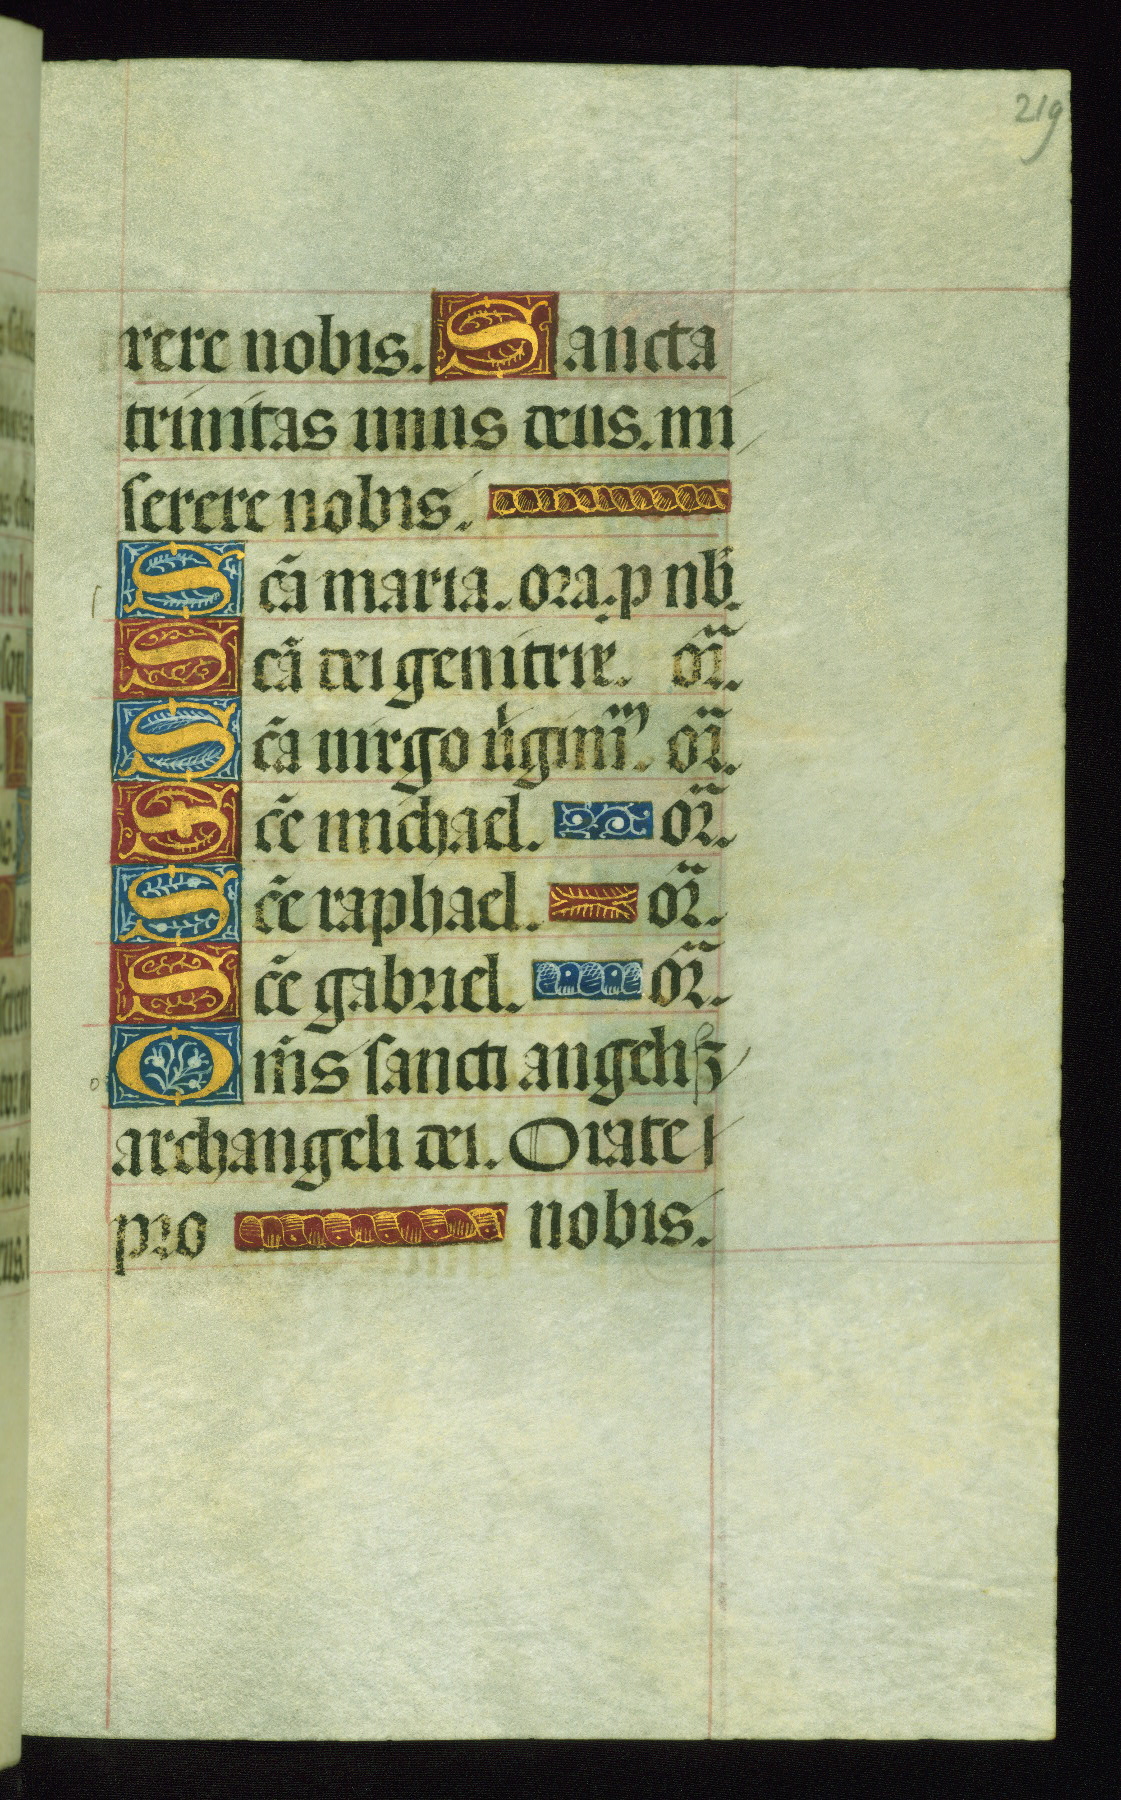 219
rere nobis. Sancta
trinitas unus deus. mi
serere nobis.
Scā maria. ora. p nb̄.
Scā dei genitrix. or̄.
Scā virgo v̓ginū. or̄.
Scē michael. or̄.
Scē raphael. or̄.
Scē gabriel. or̄.
Om̄s sancti angeli ⁊
archangeli dei. Orate
pro nobis.